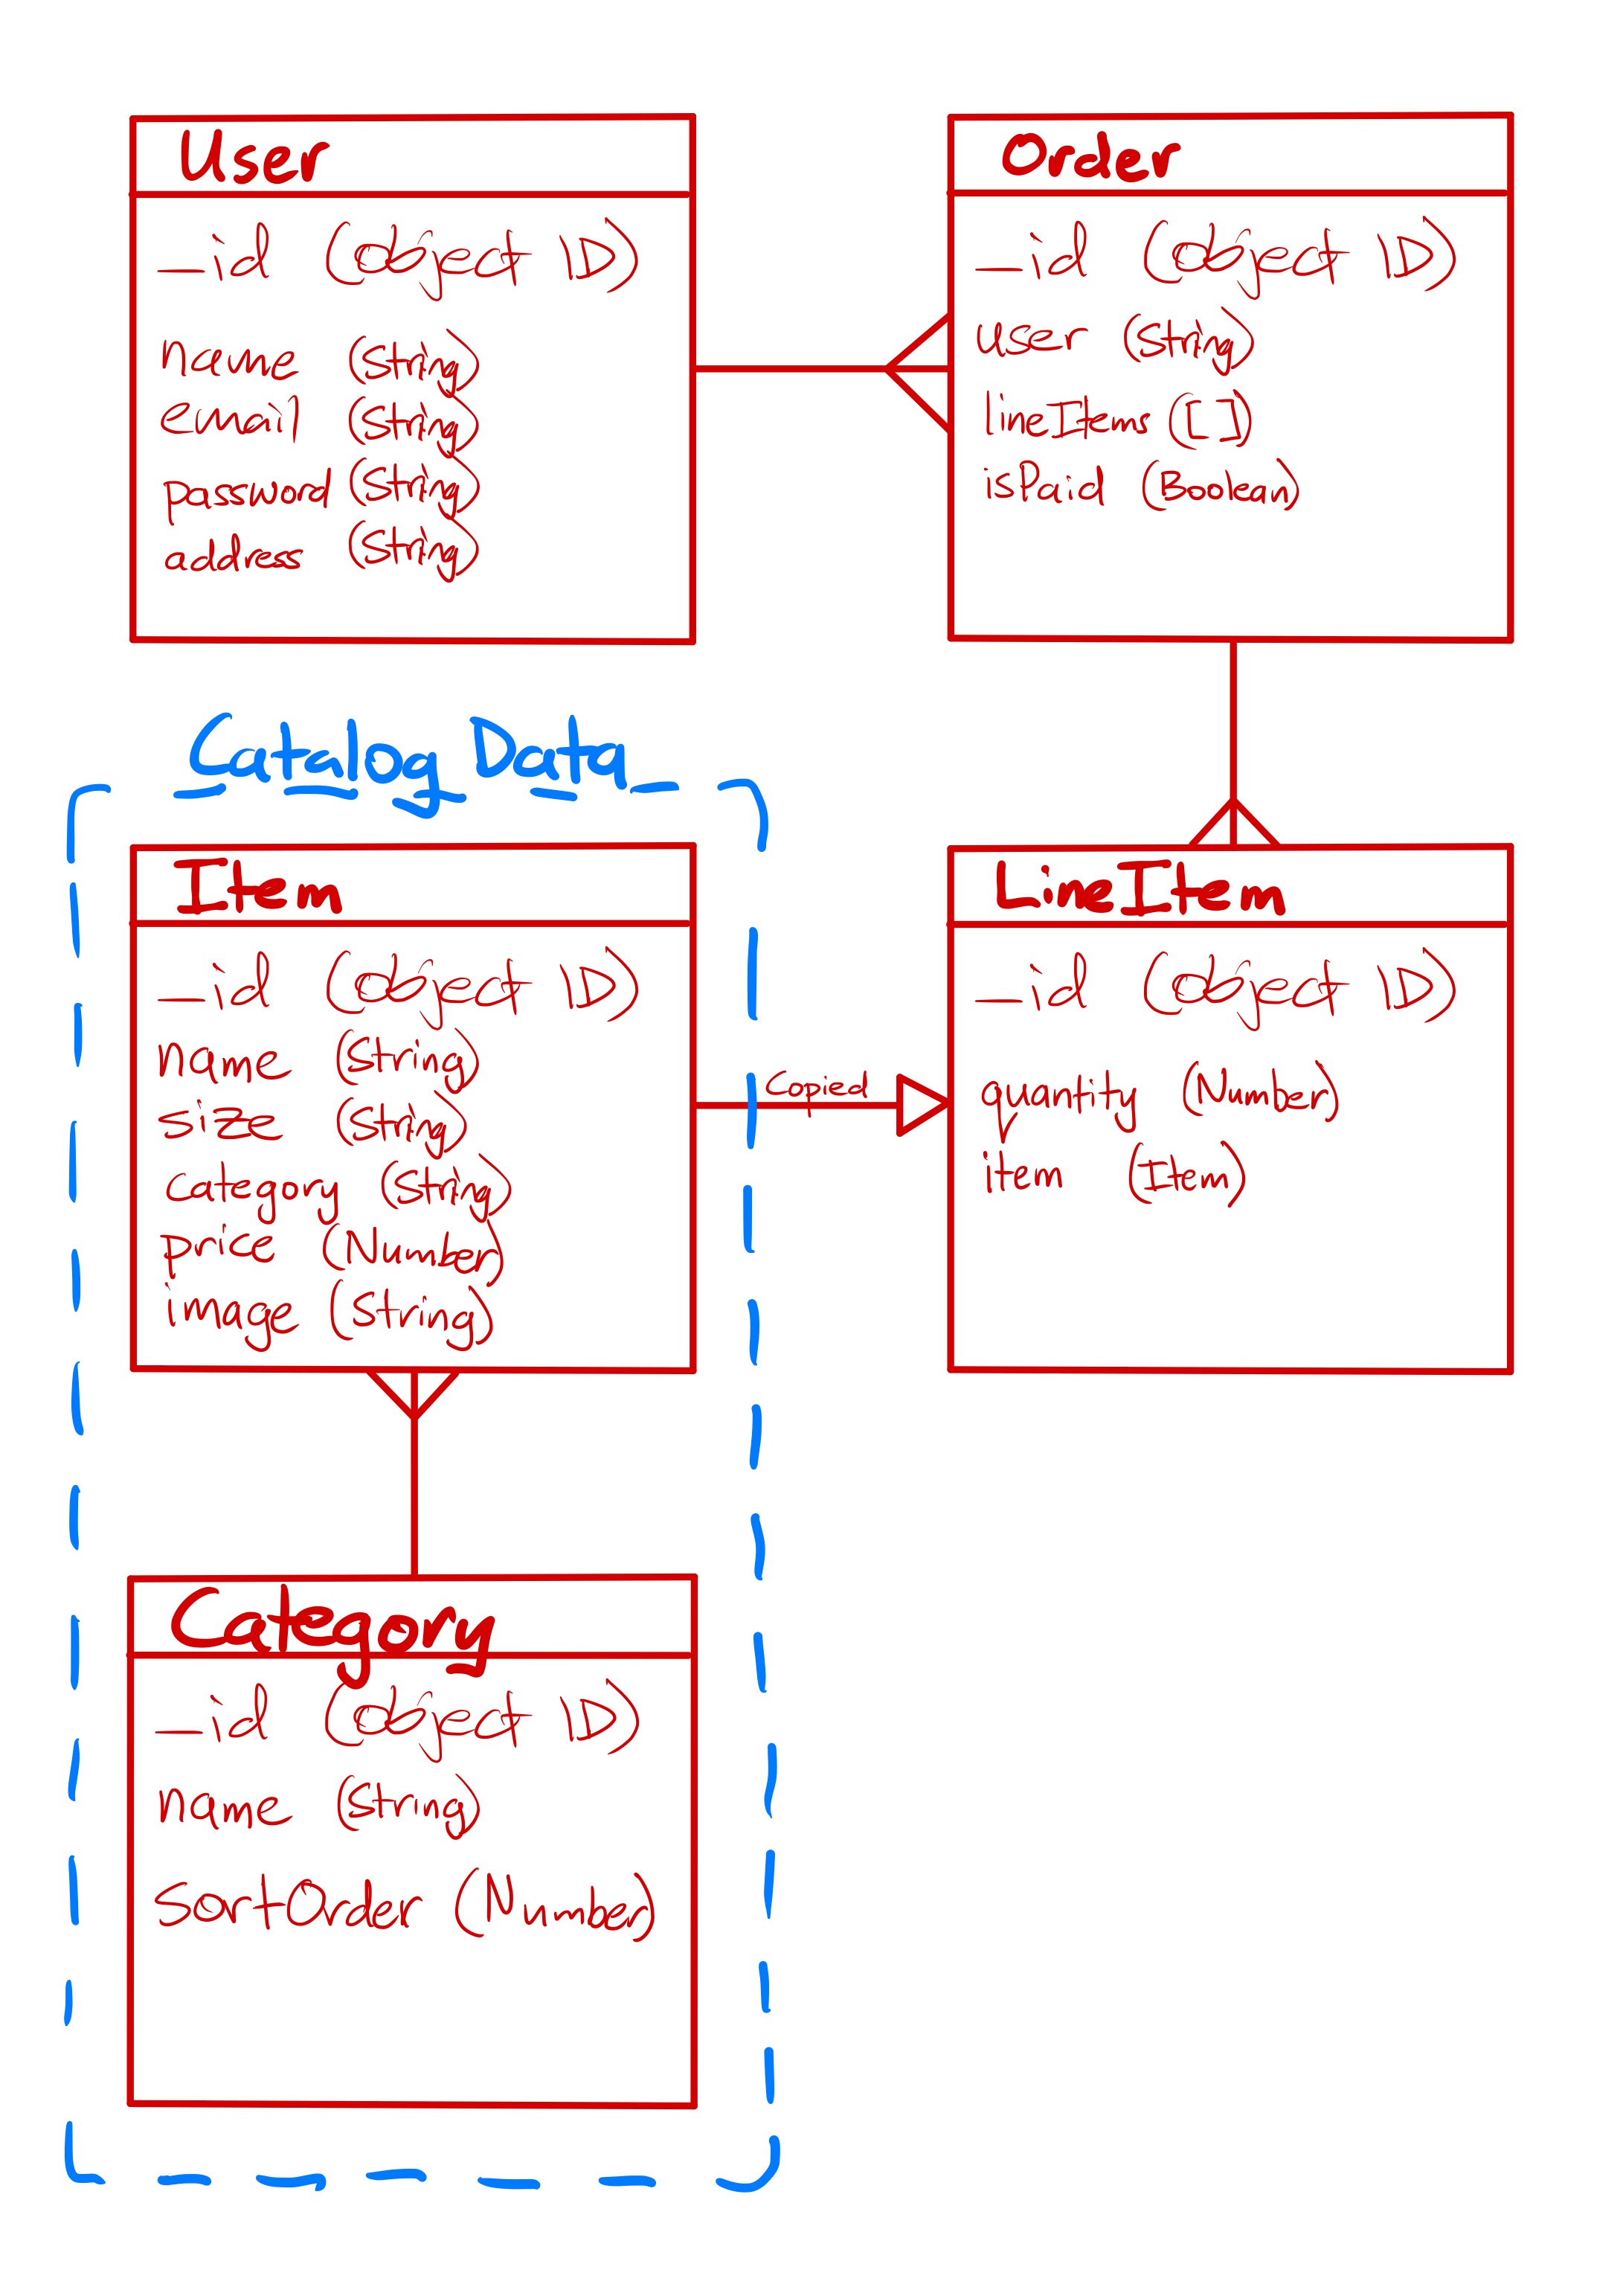 User
_id (Object ID)
name (String)
email (String)
password (String)
address (String)
Order
_id (Object ID)
user (String)
lineItems ([])
isPaid (Boolean)
Catalog Data
Item
_id (Object ID)
name (String)
size (String)
category (String)
price (Number)
image (String)
Copied
LineItem
_id (Object ID)
quantity (Number)
item (Item)
Category
_id (Object ID)
name (String)
sortOrder (Number)